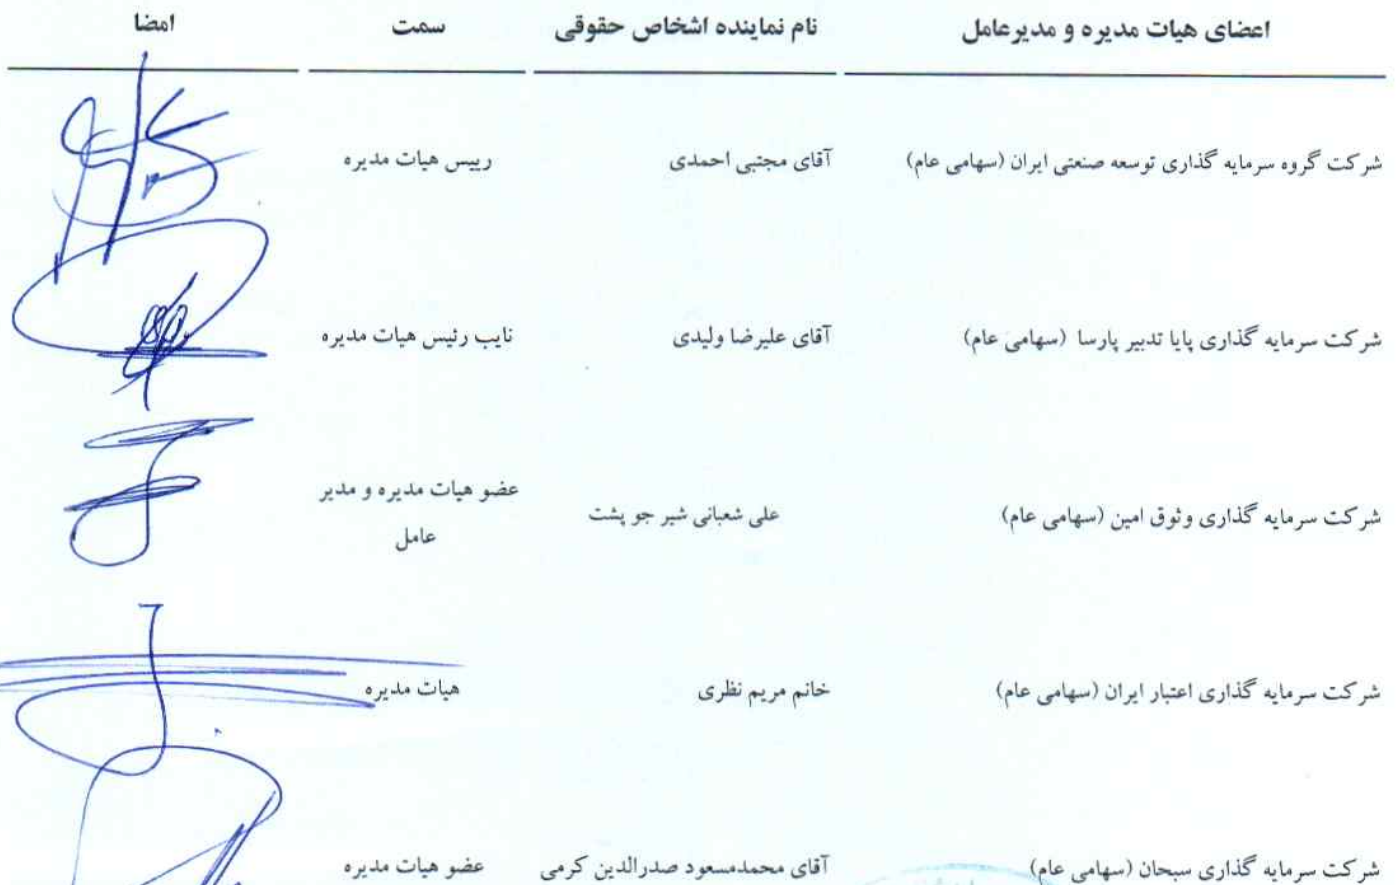 اعضای هیات مدیره و مدیرعامل نام نماینده اشخاص حقوقی سمت امضا
شرکت گروه سرمایه گذاری توسعه صنعتی ایران (سهامی عام) آقای مجتبی احمدی رییس هیات مدیره
شرکت سرمایه گذاری پایا تدبیر پارسا (سهامی عام) آقای علیرضا ولیدی نایب رئیس هیات مدیره
شرکت سرمایه گذاری وثوق امین (سهامی عام) علی شعبانی شیر جو پشت عضو هیات مدیره و مدیر
عامل
شرکت سرمایه گذاری اعتبار ایران (سهامی عام) خانم مریم نظری هیات مدیره
شرکت سرمایه گذاری سبحان (سهامی عام) آقای محمدمسعود صدرالدین کرمی عضو هیات مدیره